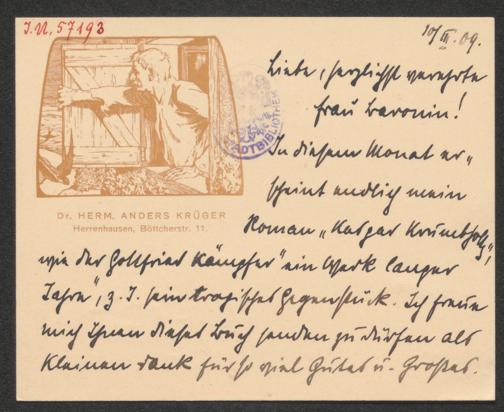 J.N. 57193
10/III. 09.
Liebe, herzlichst verehrte
Frau Baronin!
STADTBIBLIOTHEK
In diesem Monat er„
scheint endlich mein
Dr. HERM. ANDERS KRÜGER
Herrenhausen, Böttcherstr. 11.
Roman „Kaspar Krumbholtz"!
wie der Gottfried Kämpfer" ein Werk langer
Jahre", z. T. sein tragisches Gegenstück. Ich freue
mich Ihnen dieses Buch senden zu dürfen als
kleinen Dank für so viel Gutes u. Großes.